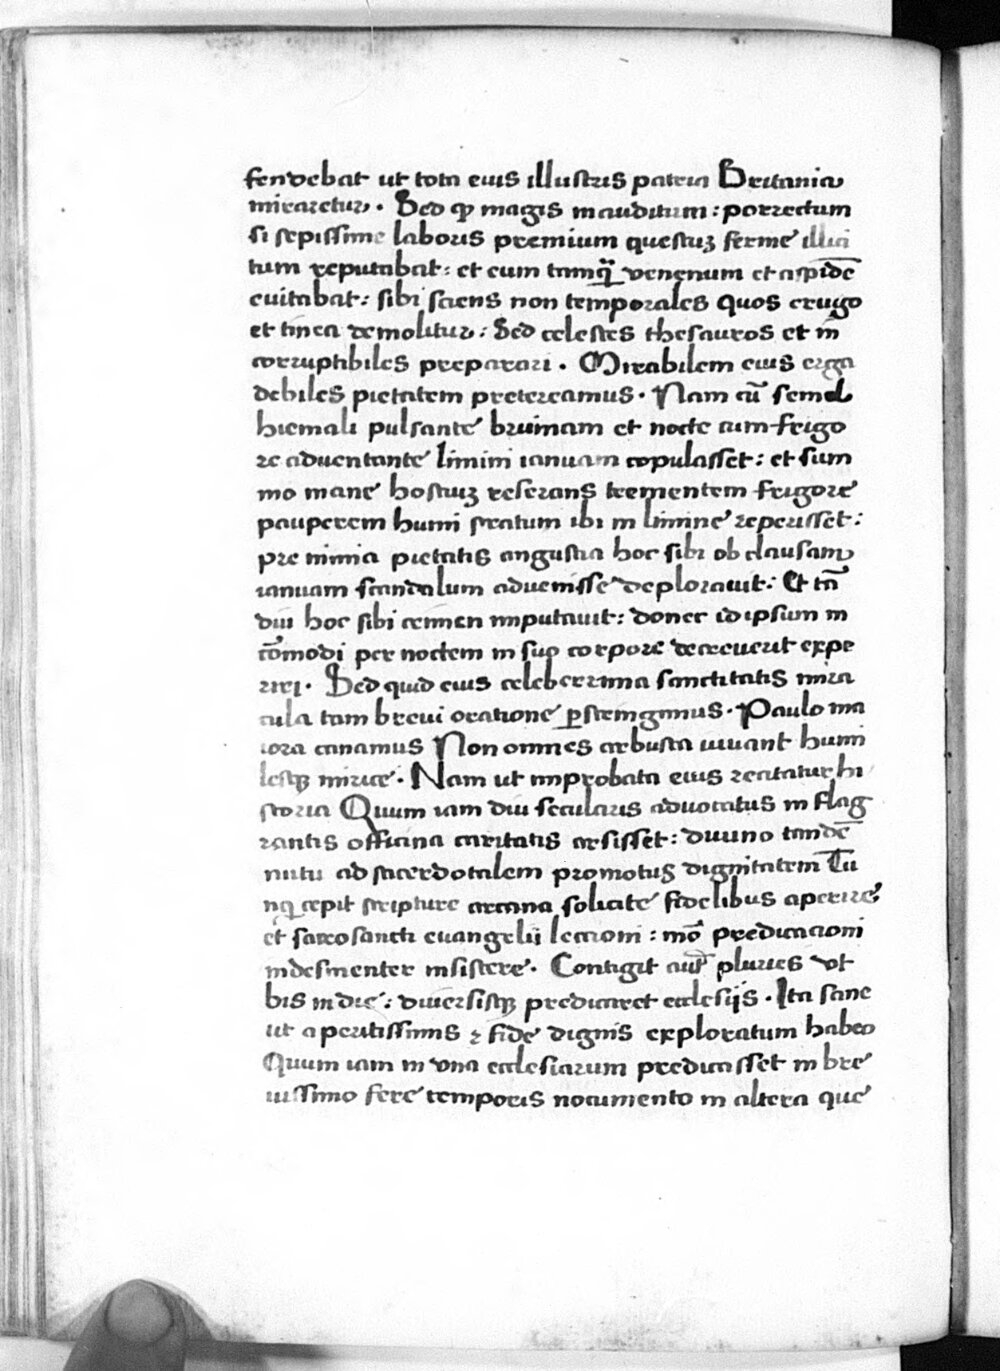 fendebat ut tota eius illustris patria Britania
miraretur. Sed qɔ magis inauditum: porrectum
si sepissime laboris premium questuʒ ferme illici
tum reputabat: et eum tamq̃ʒ venenum et aspidē
euitabat: sibi sciens non temporales quos erugo
et tinea demolitur: Sed celestes thesauros et in
corruptibiles preparari. Mirabilem eius erga
debiles pietatem pretereamus. Nam cū semel
hiemali pulsante brumam et nocte cum frigo
re aduentante limini ianuam copulasset: et sum
mo mane hostiuʒ reserans trementem frigore
pauperem humi stratum ibi in limine reperisset:
pre nimia pietatis angustia hoc sibi ob clausam
ianuam scandalum aduenisse deplorauit: Et tā
diu hoc sibi crimen imputauit: donec id ipsum in
cōmodi per noctem in suo corpore decreuerit expe
riri. Sed quid eius celeberrima sanctitatis mira
cula tam breui oratione ꝑstringimus. Paulo ma
iora canamus Non omnes arbusta iuuant humi
lesqʒ mirice. Nam ut improbata eius recitatur hi
storia Quum iam diu secularis aduocatus in flag
rantis officina caritatis arsisset: diuino tandē
nutu ad sacerdotalem promotus dignitatem Tū
nq̨ cepit scripture arcana solicite fidelibus aperire
et sacrosancti euangelii leccioni: mō predicacioni
indesinenter insistere. Contigit aut̃ pluries vt
bis in die: diuersisqʒ predicaret ecclesijs. Ita sane
ut a peritissimis ⁊ fide dignis exploratum habeo
Quum iam in vna ecclesiarum predicasset in bre
uissimo fere temporis nocumento in altera que